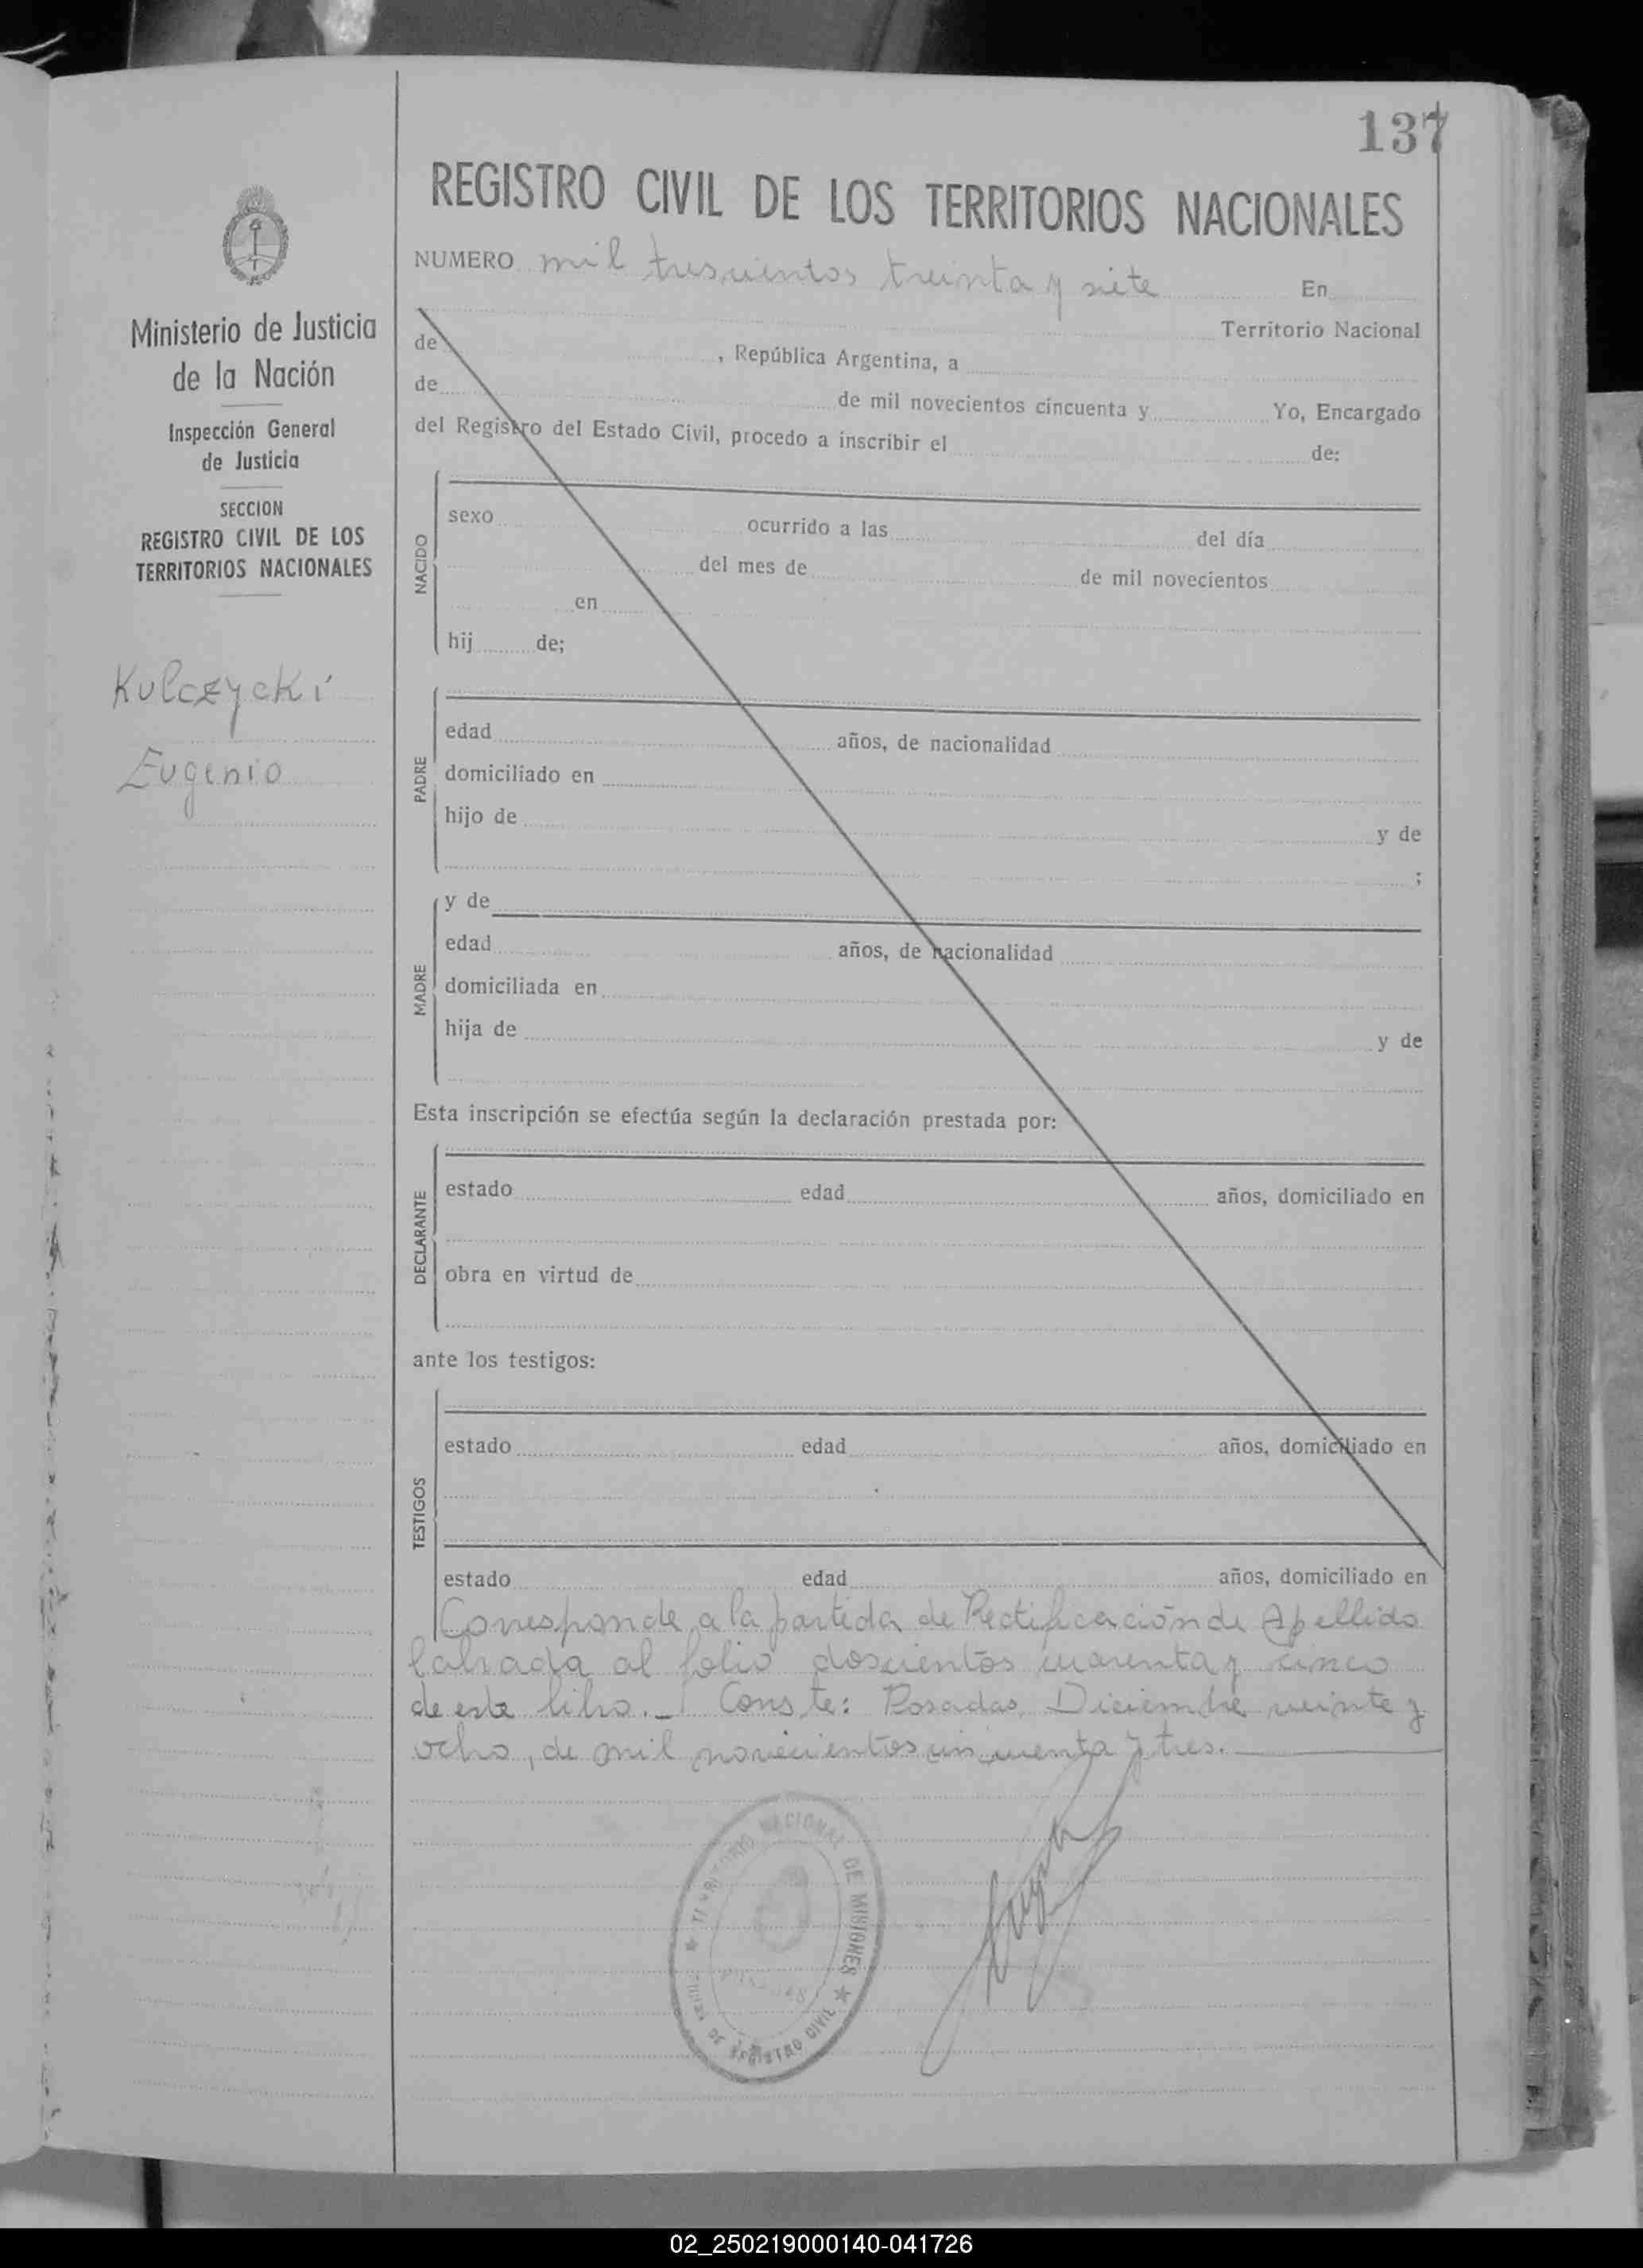 137
REGISTRO CIVIL DE LOS TERRITORIOS NACIONALES
NUMERO mil trescientos treinta y siete En
Territorio Nacional
de , República Argentina, a
de de mil novecientos cincuenta y Yo, Encargado
del Registro del Estado Civil, procedo a inscribir el de:
Ministerio de Justicia
de la Nación
Inspección General
de Justicia
SECCION
REGISTRO CIVIL DE LOS
TERRITORIOS NACIONALES
Kulczycki
Eugenio
NACIDO
sexo ocurrido a las del día
del mes de de mil novecientos
en
hij de;
PADRE
edad años, de nacionalidad
domiciliado en
hijo de y de
;
MADRE
y de
edad años, de nacionalidad
domiciliada en
hija de y de
Esta inscripción se efectúa según la declaración prestada por:
DECLARANTE
estado edad años, domiciliado en
obra en virtud de
ante los testigos:
TESTIGOS
estado edad años, domiciliado en
estado edad años, domiciliado en
Corresponde a la partida de Rectificación de Apellido
labrada al folio doscientos cuarenta y cinco
de este libro._ Conste: Posadas, Diciembre veinte y
ocho, de mil novecientos cincuenta y tres.
TERRITORIO NACIONAL DE MISIONES
DE REGISTRO CIVIL
02_250219000140-041726